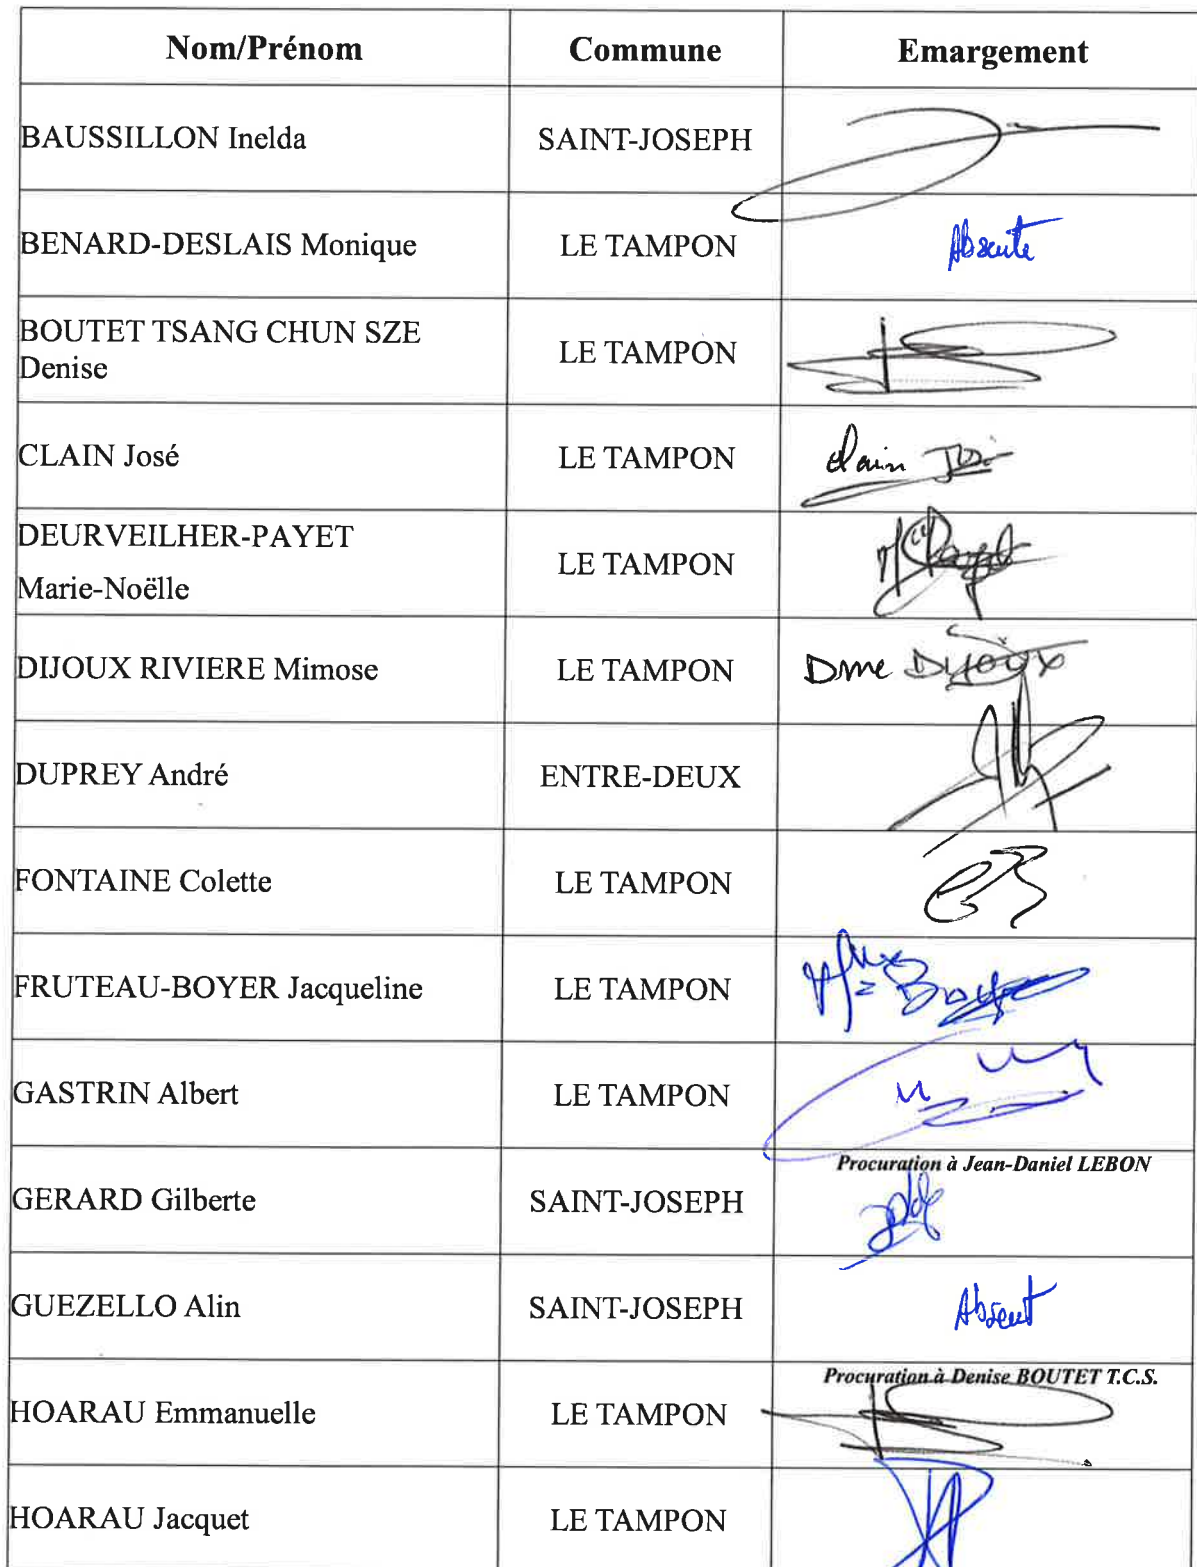 Nom/Prénom Commune Emargement
BAUSSILLON Inelda SAINT-JOSEPH
BENARD-DESLAIS Monique LE TAMPON Absente
BOUTET TSANG CHUN SZE
Denise LE TAMPON
CLAIN José LE TAMPON Clain José
DEURVEILHER-PAYET
Marie-Noëlle LE TAMPON
DIJOUX RIVIERE Mimose LE TAMPON Dme Dijoux
DUPREY André ENTRE-DEUX
FONTAINE Colette LE TAMPON
FRUTEAU-BOYER Jacqueline LE TAMPON
GASTRIN Albert LE TAMPON
Procuration à Jean-Daniel LEBON
GERARD Gilberte SAINT-JOSEPH
GUEZELLO Alin SAINT-JOSEPH Absent
Procuration à Denise BOUTET T.C.S.
HOARAU Emmanuelle LE TAMPON
HOARAU Jacquet LE TAMPON